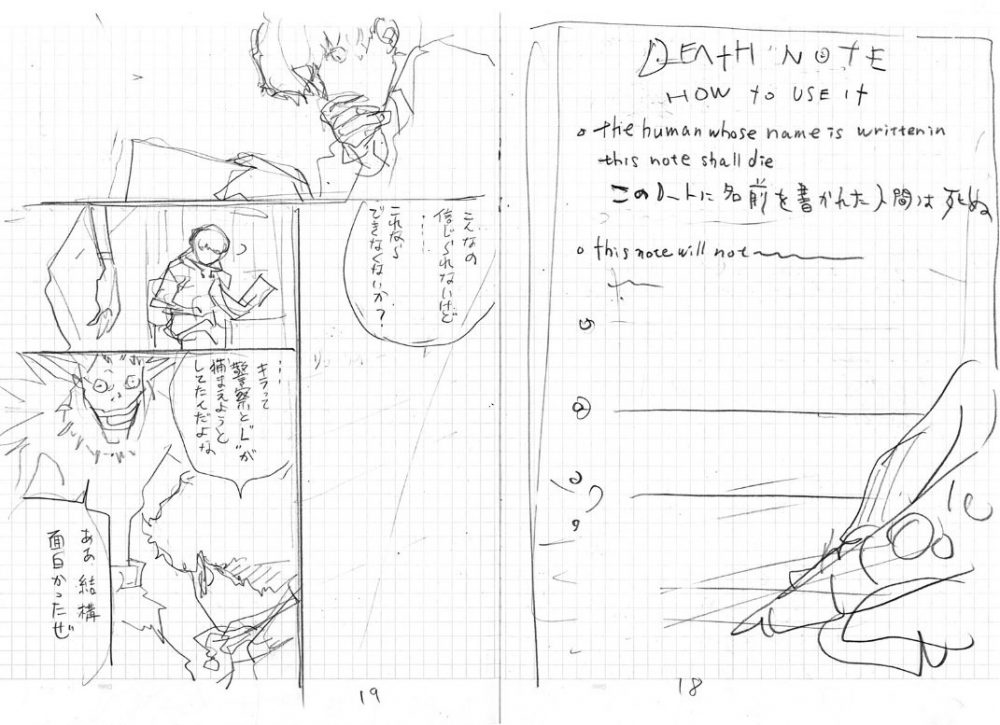 DEATH NOTE
HOW to USE it
the human whose name is written in
this note shall die
このノートに名前を書かれた人間は死ぬ
this note will not
18
こんなの
信じられないけど
……
これなら
できなくないか？
……
キラって
警察と"L"が
捕まえようと
してたんだよな
ああ 結構
面白かったぜ
19